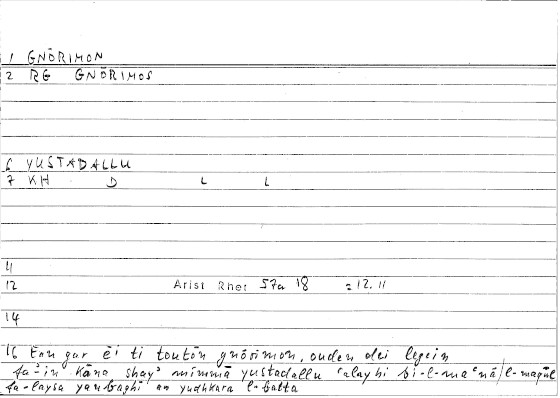 1 GNŌRIMON
2 RG GNŌRIMOS
6 YUSTADALLU
7 KH D L L
11
12 Arist Rhet 57a 18 = 12.11
14
16 Ean gar ēi ti toutōn gnōrimon, ouden dei legein
fa-in kāna shayʾ mimmā yustadallu ʿalayhi bi-l-maʿnā/l-maqūl
fa-laysa yanbaghī an yudhkara l-batta